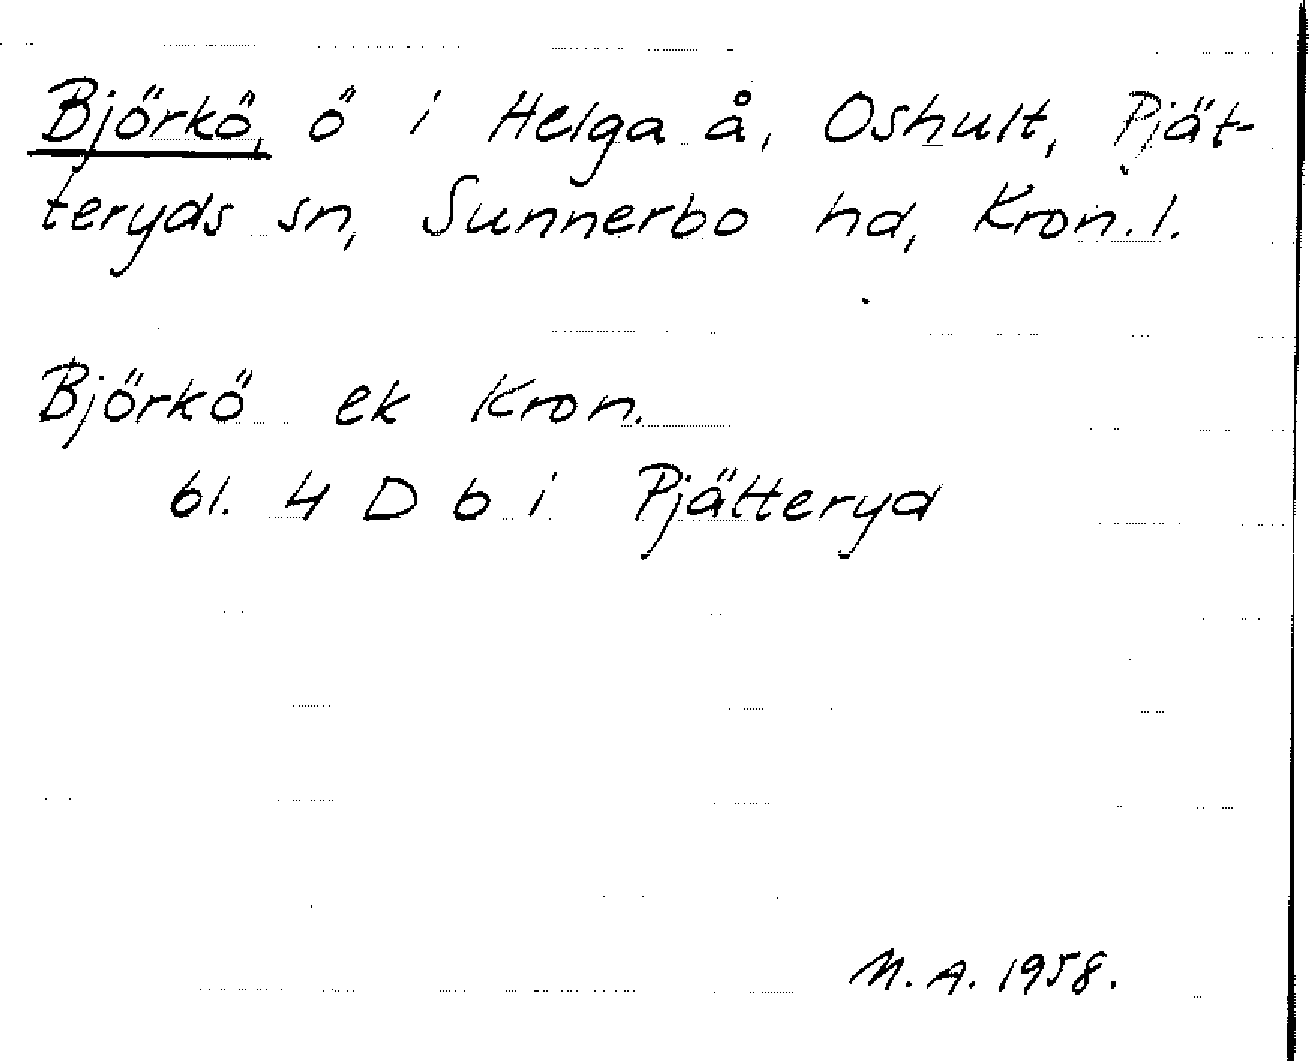 Björkö, ö i Helga å, Oshult, Pjät-
teryds sn, Sunnerbo hd, Kron. l.
Björkö ek Kron.
bl. 4 D b i Pjätteryd
M. A. 1958.